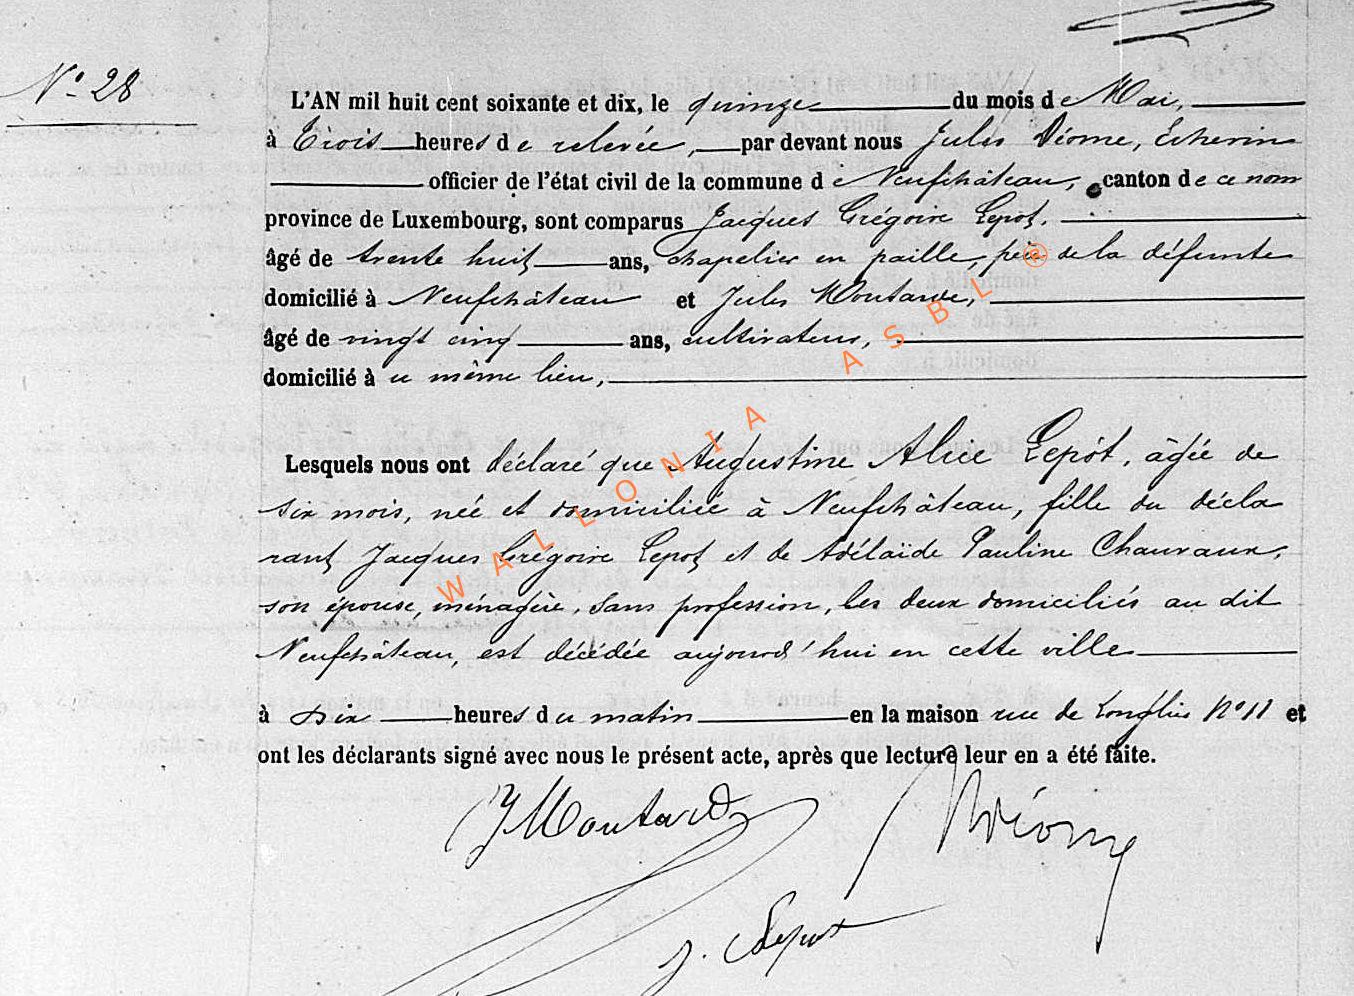 N° 28
L'AN mil huit cent soixante et dix, le quinze du mois de Mai,
à Trois heures de relevée, par devant nous Jules Déome, Echevin
officier de l'état civil de la commune de Neufchâteau, canton de ce nom
province de Luxembourg, sont comparus Jacques Grégoire Lepot,
âgé de trente huit ans, chapelier en paille, père de la défunte
domicilié à Neufchâteau et Jules Moutarde,
âgé de vingt cinq ans, cultivateur,
domicilié à u même lieu,
Lesquels nous ont déclaré que Augustine Alice Lepôt, âgée de
six mois, née et domiciliée à Neufchâteau, fille du décla
rant Jacques Grégoire Lepot et de Adélaïde Pauline Chauvaux,
son épouse, ménagère, sans profession, les deux domiciliés au dit
Neufchâteau, est décédée aujourd'hui en cette ville
à dix heures du matin en la maison rue de Longlier N° 11 et
ont les déclarants signé avec nous le présent acte, après que lecture leur en a été faite.
JMoutarde
JDéome
J. Lepot
WALLONIA ASBL ®